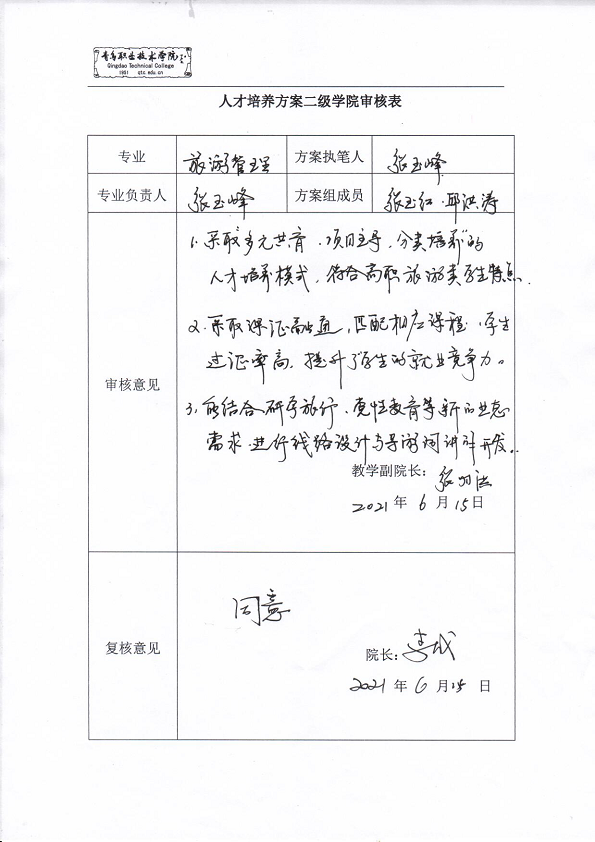 青岛职业技术学院
Qingdao Technical College
1951 qtc.edu.cn
人才培养方案二级学院审核表
专业 旅游管理 方案执笔人 张玉峰
专业负责人 张玉峰 方案组成员 张玉红、邱洪涛
审核意见
1. 采取“多元共育、项目主导、分类培养”的
人才培养模式，符合高职旅游类学生特点.
2. 采取课证融通，匹配相应课程，学生
过证率高，提升了学生的就业竞争力。
3. 能结合研学旅行、党性教育等新的业态
需求，进行线路设计与导游词讲解开发。
教学副院长：张
2021年 6 月 15日
复核意见
同意
院长：李
2021 年 6 月 15 日